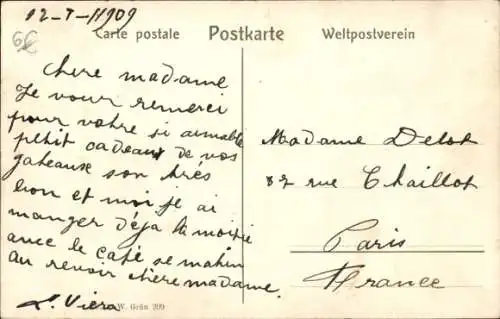 12-I-1909
6€
Carte postale Postkarte Weltpostverein
chere madame
Je vour remerci
pour vohre si aimable
pehit cadeaux de vos
gateaux son trés
lion et moi je ai
manger déja la moitie
avce le café se mahin
au revoir chère madame.
L. Viera
W. Grün 209
Madame Delot
87 rue Chaillot
Paris
France